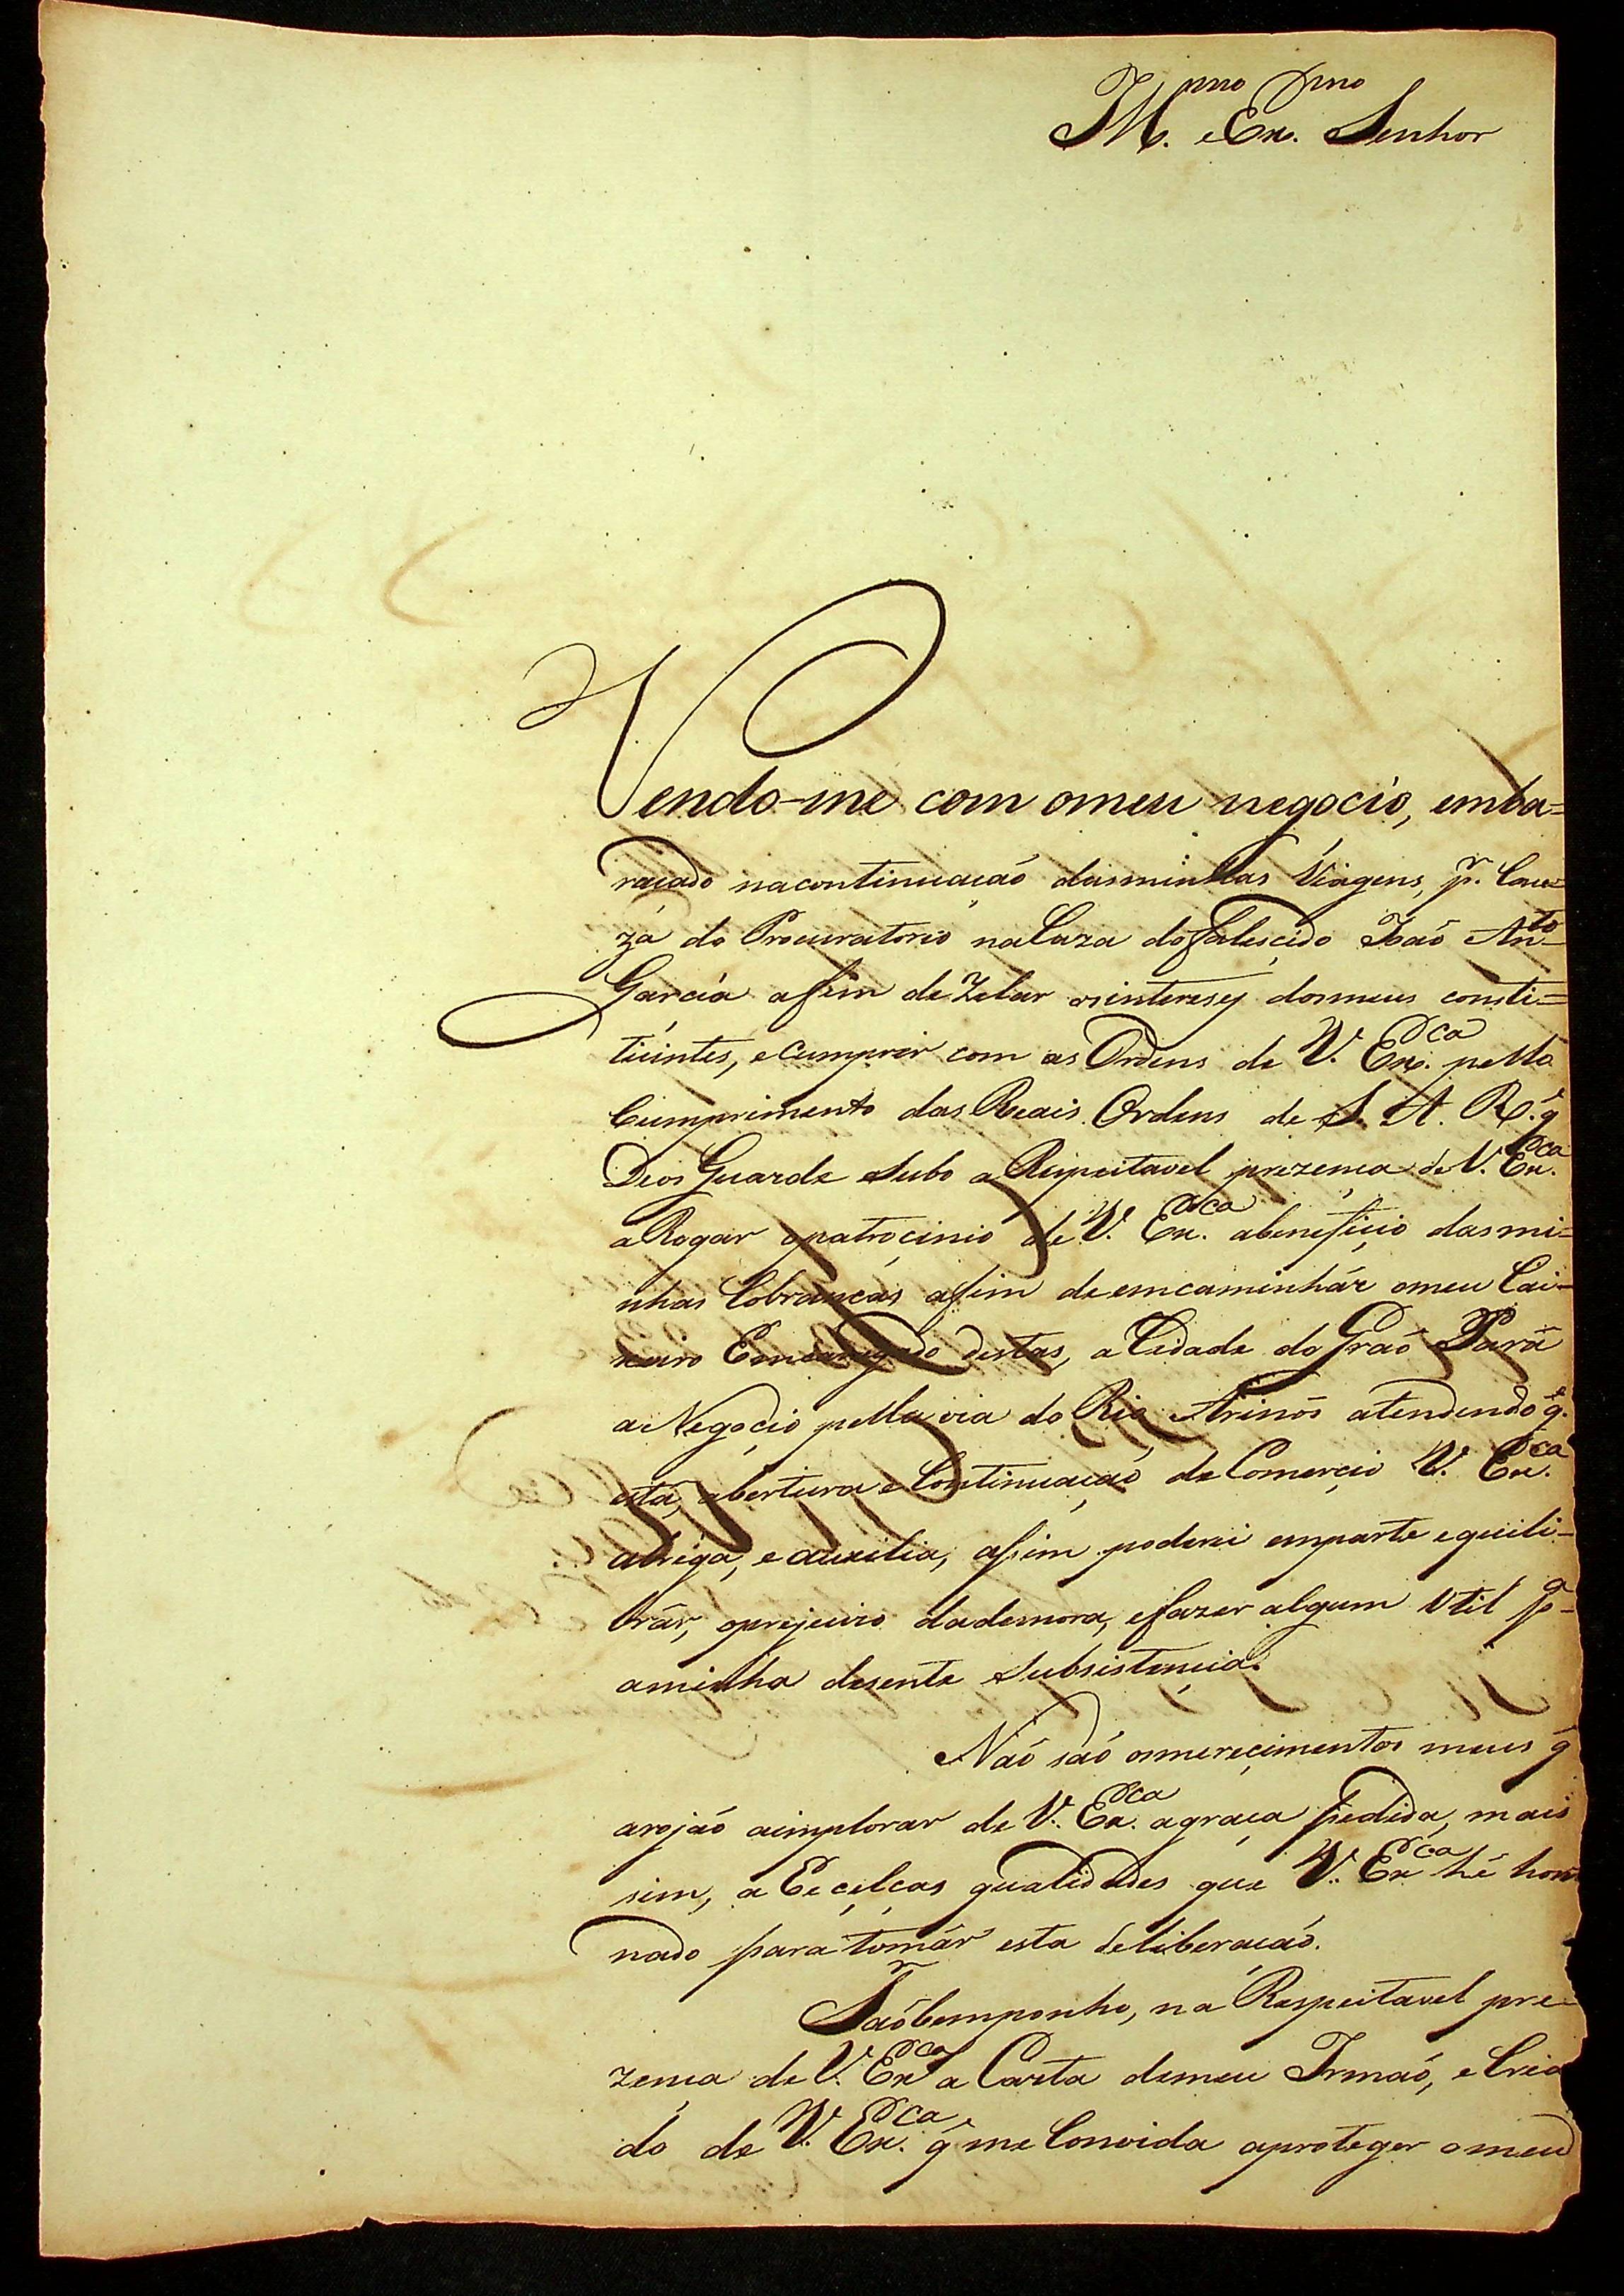 Ill.mo e Ex.mo Senhor
Vendo-me com omeu negocio, emba=
raçado nacontinuação dasminhas Viagens, p.r Cau=
za do Procuratorio naCaza dofalescido João An.to
Garcia afim deZelar osintereses dosmeus consti=
tuintes, eCumprir com as Ordens de V. Ex.ca pello
Cumprimento das Reais Ordens de S. A. R. q̃
Deos Guarde Subo a Respeitavel prezença de V. Ex.ca
a Rogar opatrocinio de V. Ex.ca abeneficio dasmi=
nhas Cobranças afim deemcaminhár omeu Cai=
xeiro Emcaregado destas, a Cidade do Grão Pará
a Negocio pella via do Rio Arinos atendendo q̃
esta, abertura e Continuação de Comercio V. Ex.ca
abriga, e auxilia, asim poderei emparte equili=
brár, oprejuizo dademora, efazer algum Util p.a
aminha desente Subsistencia.
Não são osmerecimentos meus q̃
arojão aimplorar de V. Ex.ca agraça pedida, mais
sim, a Ecçelças qualidades que V. Ex.ca hé hor
nado para tomár esta deliberação.
Sr
Tãobemponho, na Respeitavel pre=
zença de V. Ex.ca a Carta demeu Irmão, e Cria
do de V. Ex.ca q̃ me Convida aproteger omeu